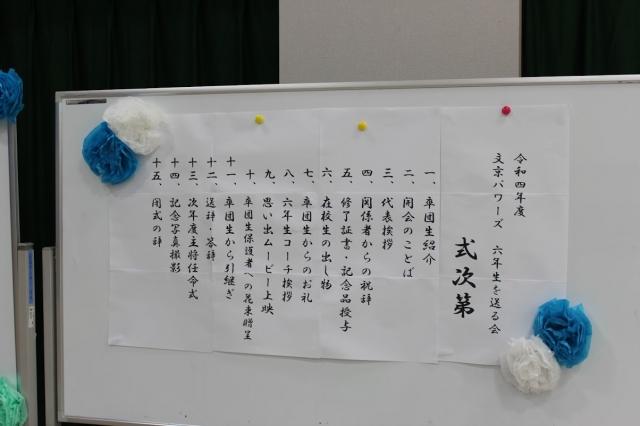 令和四年度
文京パワーズ 六年生を送る会
式次第
一、卒団生紹介
二、開会のことば
三、代表挨拶
四、関係者からの祝辞
五、修了証書・記念品授与
六、在校生の出し物
七、卒団生からのお礼
八、六年生コーチ挨拶
九、思い出ムービー上映
十、卒団生保護者への花束贈呈
十一、卒団生から引継ぎ
十二、送辞・答辞
十三、次年度主将任命式
十四、記念写真撮影
十五、閉式の辞